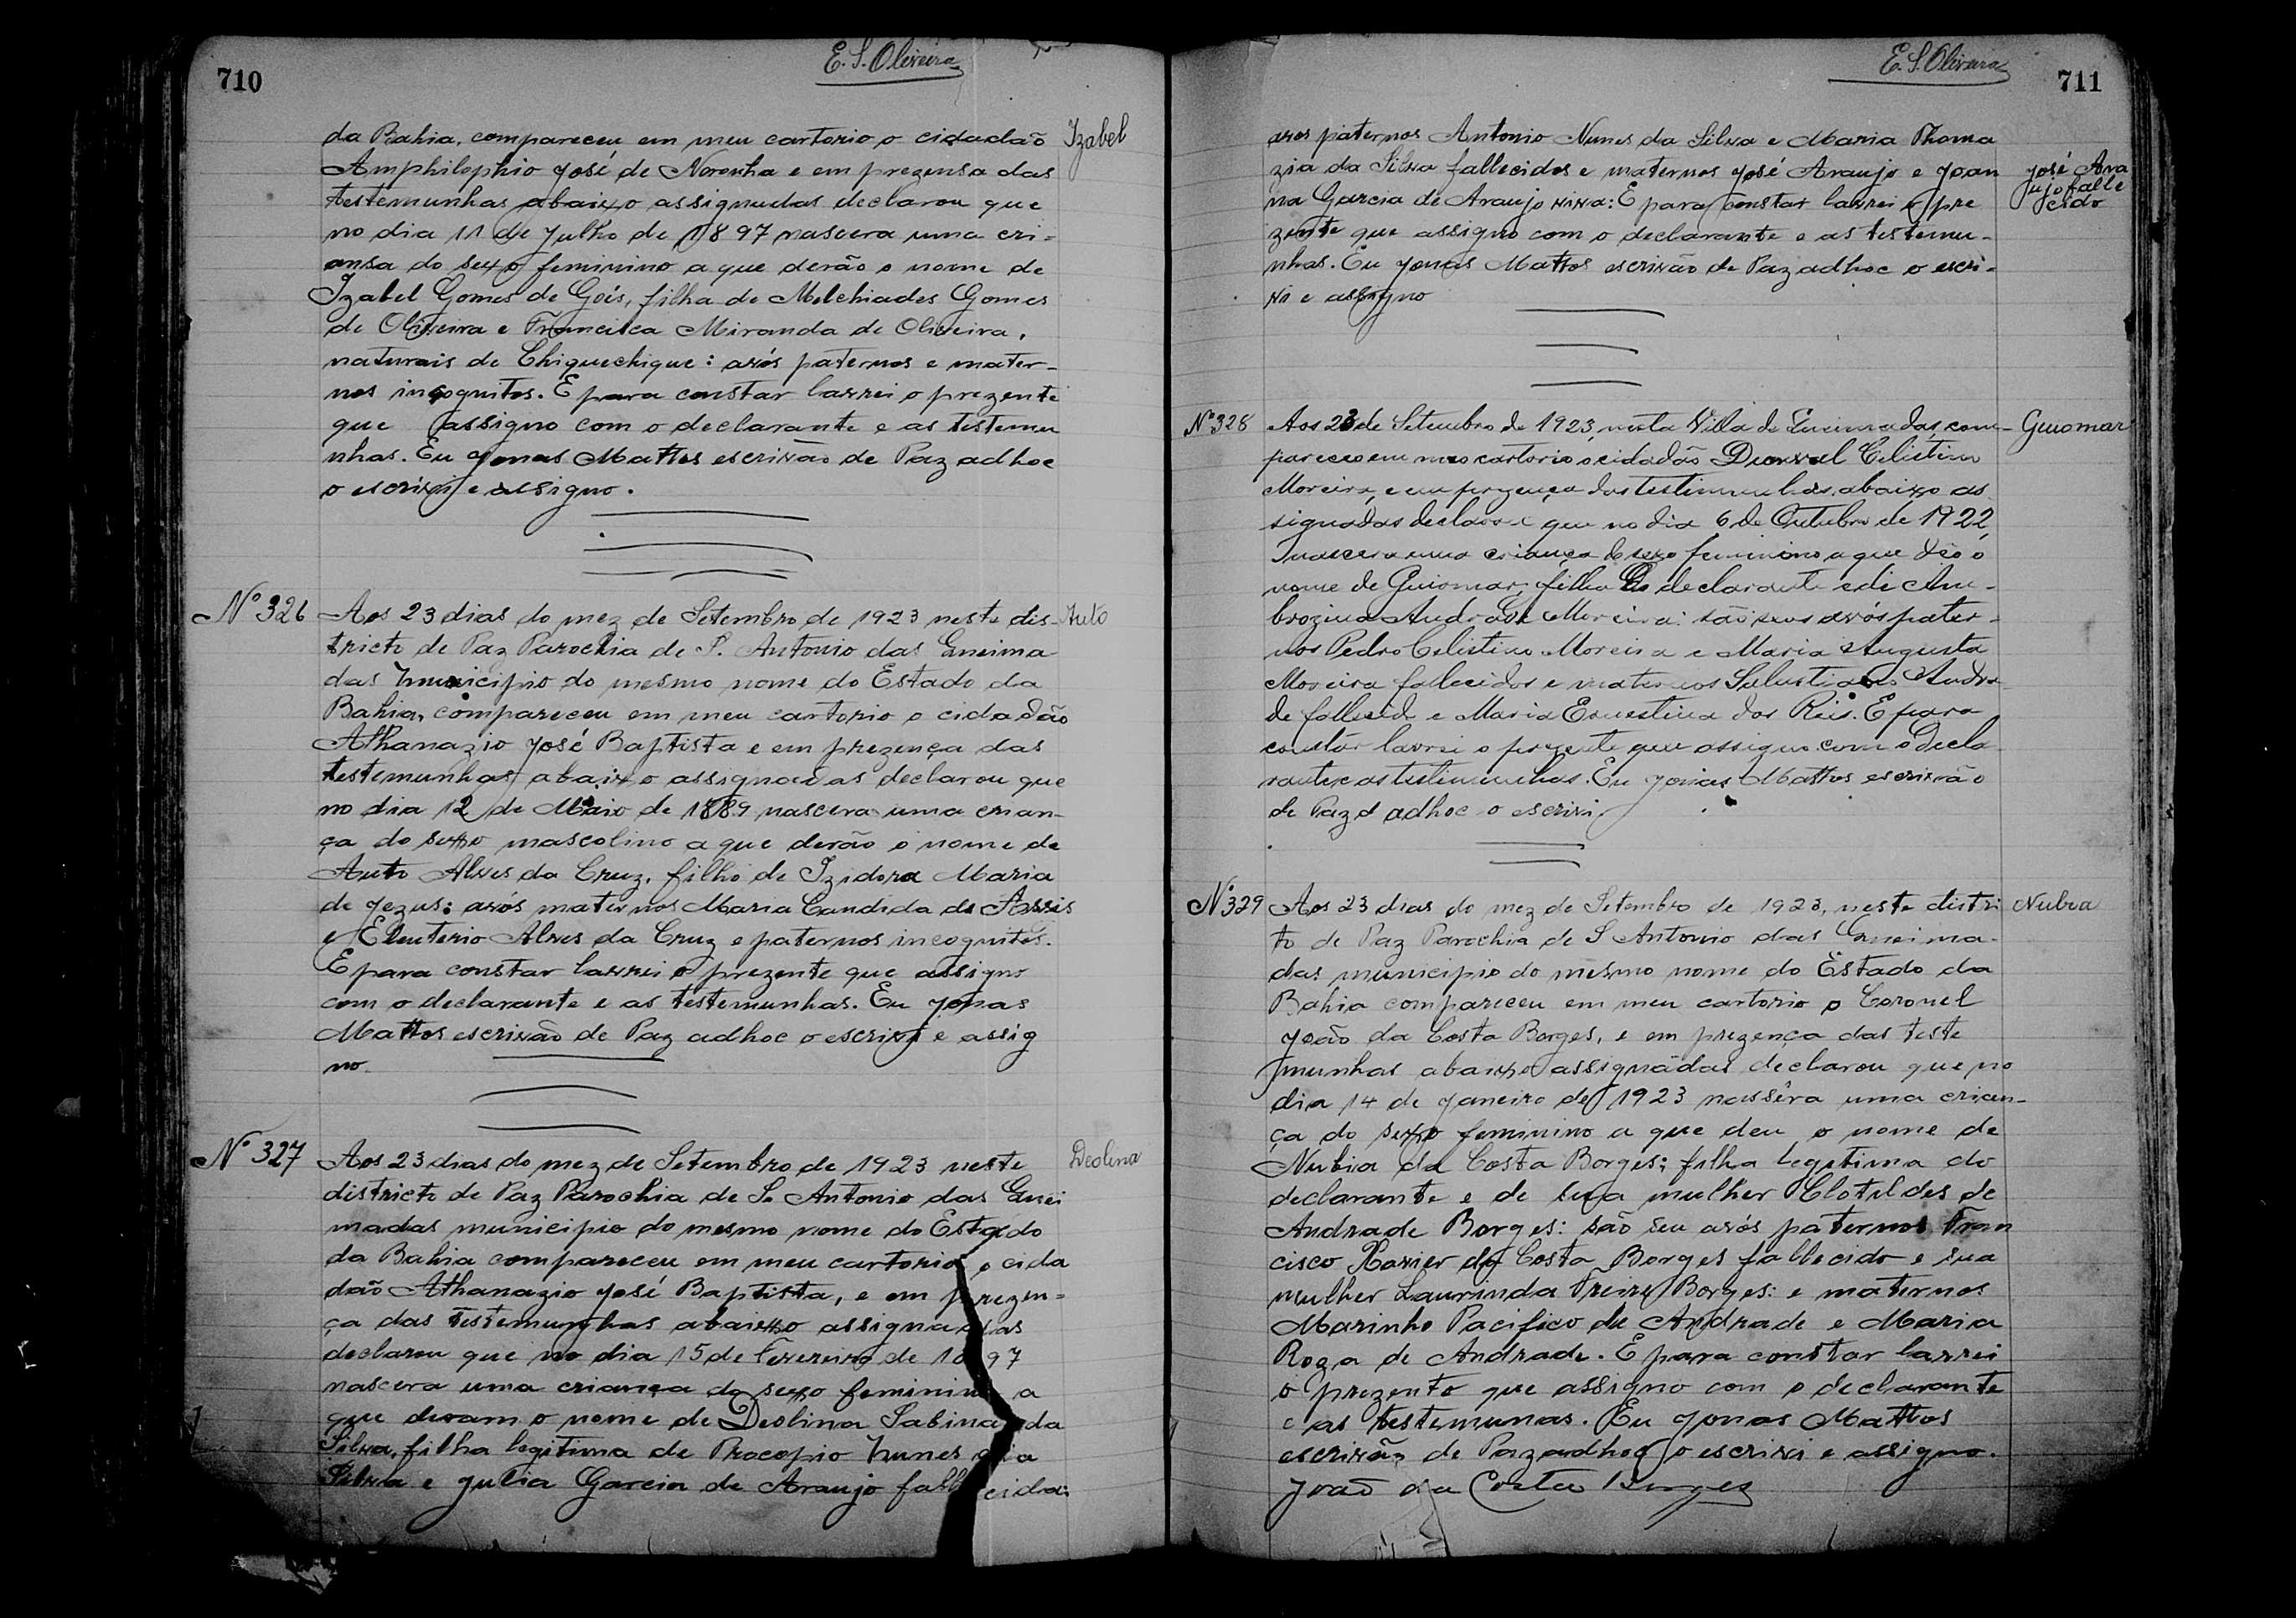 710
E. S. Oliveira
da Bahia, compareceu em meu cartorio o cidadão
Izabel
Amphilophio José de Noronha e em prezensa das
testemunhas abaixo assignadas declarou que
no dia 11 de Julho de 1897 nascera uma cri-
ansa do sexo feminino a que derão o nome de
Izabel Gomes de Góis, filha de Melchiades Gomes
de Oliveira e Francisca Miranda de Oliveira,
naturais de Chiquechique: avós paternos e mater-
nos incognitos. E para constar lavrei o prezente
que assigno com o declarante e as testemu
nhas. Eu Jonas Mattos escrivão de Paz adhoc
o escrivi e assigno.
Nº 326
Aos 23 dias do mez de Setembro de 1923 neste dis-
Auto
tricto de Paz Parochia de S. Antonio das Queima
das municipio do mesmo nome do Estado da
Bahia, compareceu em meu cartorio o cidadão
Athanazio José Baptista e em prezença das
testemunhas abaixo assignadas declarou que
no dia 12 de Maio de 1889 nascera uma crian-
ça do sexo mascolino a que derão o nome de
Auto Alves da Cruz, filho de Izidora Maria
de Jezus: avós maternos Maria Candida de Assis
e Eleuterio Alves da Cruz e paternos incognitos.
E para constar lavrei o prezente que assigno
com o declarante e as testemunhas. Eu Jonas
Mattos escrivão de Paz adhoc o escrivi e assig
no.
Nº 327
Aos 23 dias do mez de Setembro de 1923 neste
Deolina
districto de Paz Parochia de S. Antonio das Quei
madas municipio do mesmo nome do Estado
da Bahia compareceu em meu cartorio o cida
dão Athanazio José Baptista, e em prezen-
ça das testemunhas abaixo assignadas
declarou que no dia 15 de Fevereiro de 1897
nascera uma criança do sexo feminino a
que deram o nome de Deolina Sabina da
Silva, filha legitima de Procopio Nunes da
Silva e Julia Garcia de Araujo fallecida:
E. S. Oliveira
711
avos paternos Antonio Nunes da Silva e Maria Thoma
zia da Silva fallecidos e maternos José Araujo e Joan
José Ara
ujo falle
cido
na Garcia de Araujo viva: E para constar lavrei o pre
zente que assigno com o declarante e as testemu-
nhas. Eu Jonas Mattos escrivão de Paz adhoc o escri-
vi e assigno
Nº 328
Aos 23 de Setembro de 1923, nesta Villa de Queimadas, com-
Guiomar
pareceo em meo cartorio o cidadão Celistino
Moreira, e em prezença das testimunhas abaixo as
signadas declarou que no dia 6 de Outubro de 1922,
nascera uma criança do sexo feminino a que deo o
nome de Guiomar, filha do declarante e de Am-
brozina Andrade Moreira: são seus avós pater-
nos Pedro Celistino Moreira e Maria Augusta
Moreira fallecidos e maternos Salustiano Andra
de fallecido e Maria Ernestina dos Reis. E para
constar lavrei o prezente que assigno com o decla
rante e as testimunhas. Eu Jonas Mattos escrivão
de Paz adhoc o escrivi.
Nº 329
Aos 23 dias do mez de Setembro de 1923, neste distri
Nubia
to de Paz Parochia de S Antonio das Queima-
das municipio do mesmo nome do Estado da
Bahia compareceu em meu cartorio o Coronel
João da Costa Borges, e em prezença das teste
munhas abaixo assignadas declarou que no
dia 14 de Janeiro de 1923 nassêra uma crian-
ça do sexo feminino a que deu o nome de
Nubia da Costa Borges; filha legitima do
declarante e de sua mulher Clotildes de
Andrade Borges: são seu avós paternos Fran
cisco Xavier da Costa Borges fallecido e sua
mulher Laurinda Freire Borges: e maternos
Marinho Pacifico de Andrade e Maria
Roza de Andrade. E para constar lavrei
o prezente que assigno com o declarante
e as testemunas. Eu Jonas Mattos
escrivão de Paz adhoc o escrivi e assigno.
João da Costa Borges